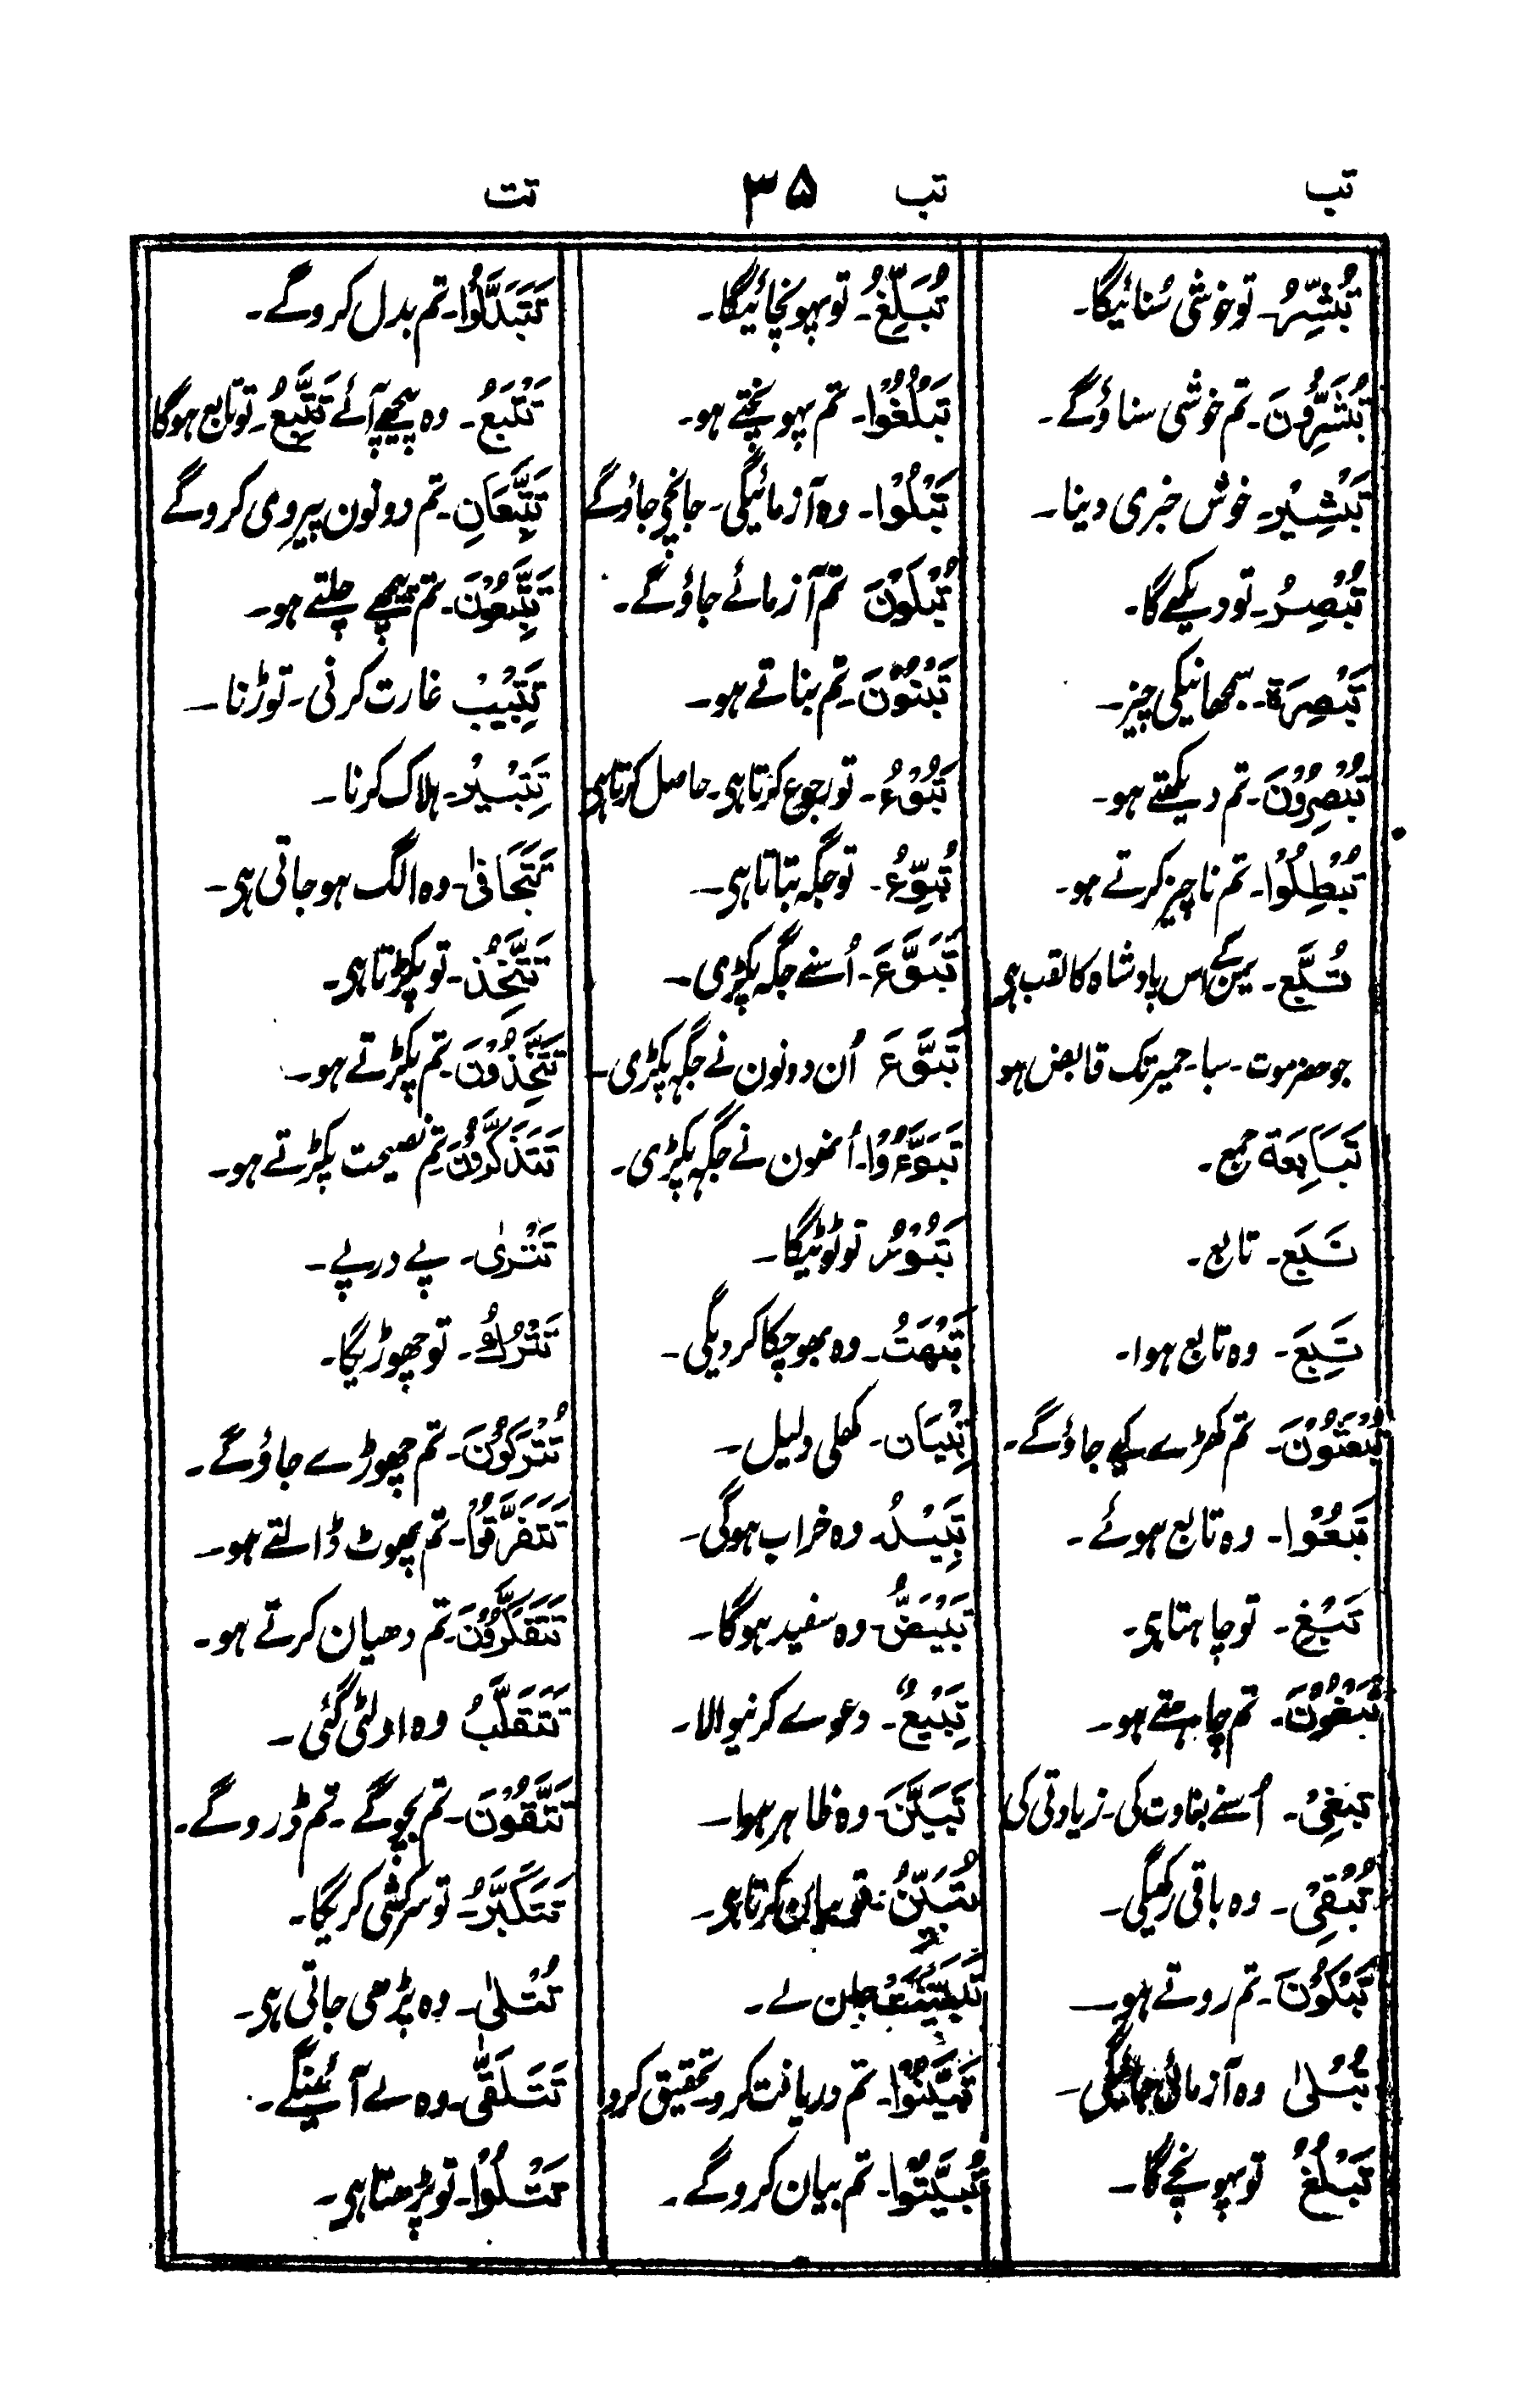 تب
تب
۳۵
تت
تُبَشِّرُ۔ تو خوشی سُنائیگا۔
تُبَشِّرُوْنَ۔ تم خوشی سناؤگے۔
تَبْشِیْر۔ خوش خبری دینا۔
تُبْصِرُ۔ تو دیکھے گا۔
تَبْصِرَۃ۔ سمجھانیکی چیز۔
تُبْصِرُوْنَ۔ تم دیکھتے ہو۔
تُبْطِلُوْا۔ تم ناچیز کرتے ہو۔
تُبَّع۔ یمن کے اس بادشاہ کا لقب ہی
جو حضرموت۔ سبا۔ حمیر تک قابض ہو
تَبَابِعَة جمع۔
تَبَع۔ تابع۔
تَبِعَ۔ وہ تابع ہوا۔
تُبْعَثُوْنَ۔ تم کھڑے کیے جاؤگے۔
تَبِعُوْا۔ وہ تابع ہوئے۔
تَبْغِ۔ تو چاہتا ہی۔
تَبْغُوْنَ۔ تم چاہتے ہو۔
تَبْغِیْ۔ اُسنے بغاوت کی۔ زیادتی کی
تُبْقِیْ۔ وہ باقی رکھیگی۔
تَبْکُوْنَ۔ تم روتے ہو۔
تُبْلیٰ وہ آزمائی جائیگی۔
تَبْلُغُ تو پہونچے گا۔
تُبَلِّغُ۔ تو پہونچائیگا۔
تَبْلُغُوْا۔ تم پہونچتے ہو۔
تَبْلُوْا۔ وہ آزمائیگی۔ جانچی جاؤگے
تُبْلَوْنَ تم آزمائے جاؤگے۔
تَبْنُوْنَ۔ تم بناتے ہو۔
تَبُوْءُ۔ تو رجوع کرتا ہی۔ حاصل کرتا ہی
تُبَوِّءُ۔ تو جگہ بتاتا ہی۔
تَبَوَّءَ۔ اُسنے جگہ پکڑی۔
تَبَوَّءَ اُن دونون نے جگہ پکڑی۔
تَبَوَّءُوْا۔ اُنھون نے جگہ پکڑی۔
تَبُوْرُ تو ٹوٹیگا۔
تَبْهَتُ۔ وہ بھوچکا کر دیگی۔
تِبْیَان۔ کھلی دلیل۔
تَبِیْدُ۔ وہ خراب ہوگی۔
تَبْیَضُّ۔ وہ سفید ہوگا۔
تَبِیْعٌ۔ دعوے کرنیوالا۔
تَبَیَّنَ۔ وہ ظاہر ہوا۔
تُبَیِّنُ۔ تو بیان کرتا ہی۔
جان لے۔
تَبَیَّنُوْا۔ تم دریافت کرو۔ تحقیق کرو
تُبَیِّنُوْا۔ تم بیان کروگے۔
تَتَبَدَّلُوْا۔ تم بدل کروگے۔
تَتْبَعُ۔ وہ پیچھے آئے تَتَّبِعُ۔ تو تابع ہوگا
تَتَّبِعَانِ۔ تم دونون پیروی کروگے
تَتَّبِعُوْنَ۔ تم پیچھے چلتے ہو۔
تَتْبِیْب غارت کرنی۔ توڑنا۔
تَتْبِیْر۔ ہلاک کرنا۔
تَتَجَافیٰ۔ وہ الگ ہوجاتی ہی۔
تَتَّخِذُ۔ تو پکڑتا ہی۔
تَتَّخِذُوْنَ۔ تم پکڑتے ہو۔
تَتَذَكَّرُوْنَ۔ تم نصیحت پکڑتے ہو۔
تَتْریٰ۔ پے درپے۔
تَتْرُكُ۔ تو چھوڑیگا۔
تُتْرَکُوْنَ۔ تم چھوڑے جاؤگے۔
تَتَفَرَّقُوْا۔ تم پھوٹ ڈالتے ہو۔
تَتَفَکَّرُوْنَ۔ تم دھیان کرتے ہو۔
تَتَقَلَّبُ وہ اولٹی گئی۔
تَتَّقُوْنَ۔ تم بچوگے۔ تم ڈروگے۔
تَتَکَبَّرُ۔ تو سرکشی کریگا۔
تُتْلیٰ۔ وہ پڑھی جاتی ہی۔
تَتَلَقّٰی۔ وہ لے آئینگے۔
تَتْلُوْا۔ تو پڑھتا ہی۔